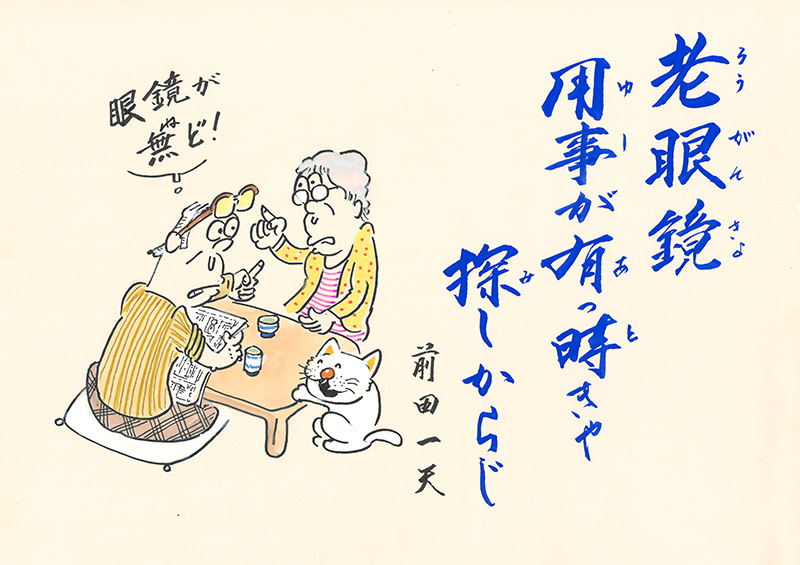 老眼鏡
ろうがんきよ
用事が有っ時きゃ
ゆし あ と
探しからじ
み
前田一天
眼鏡が
無ど!
ね